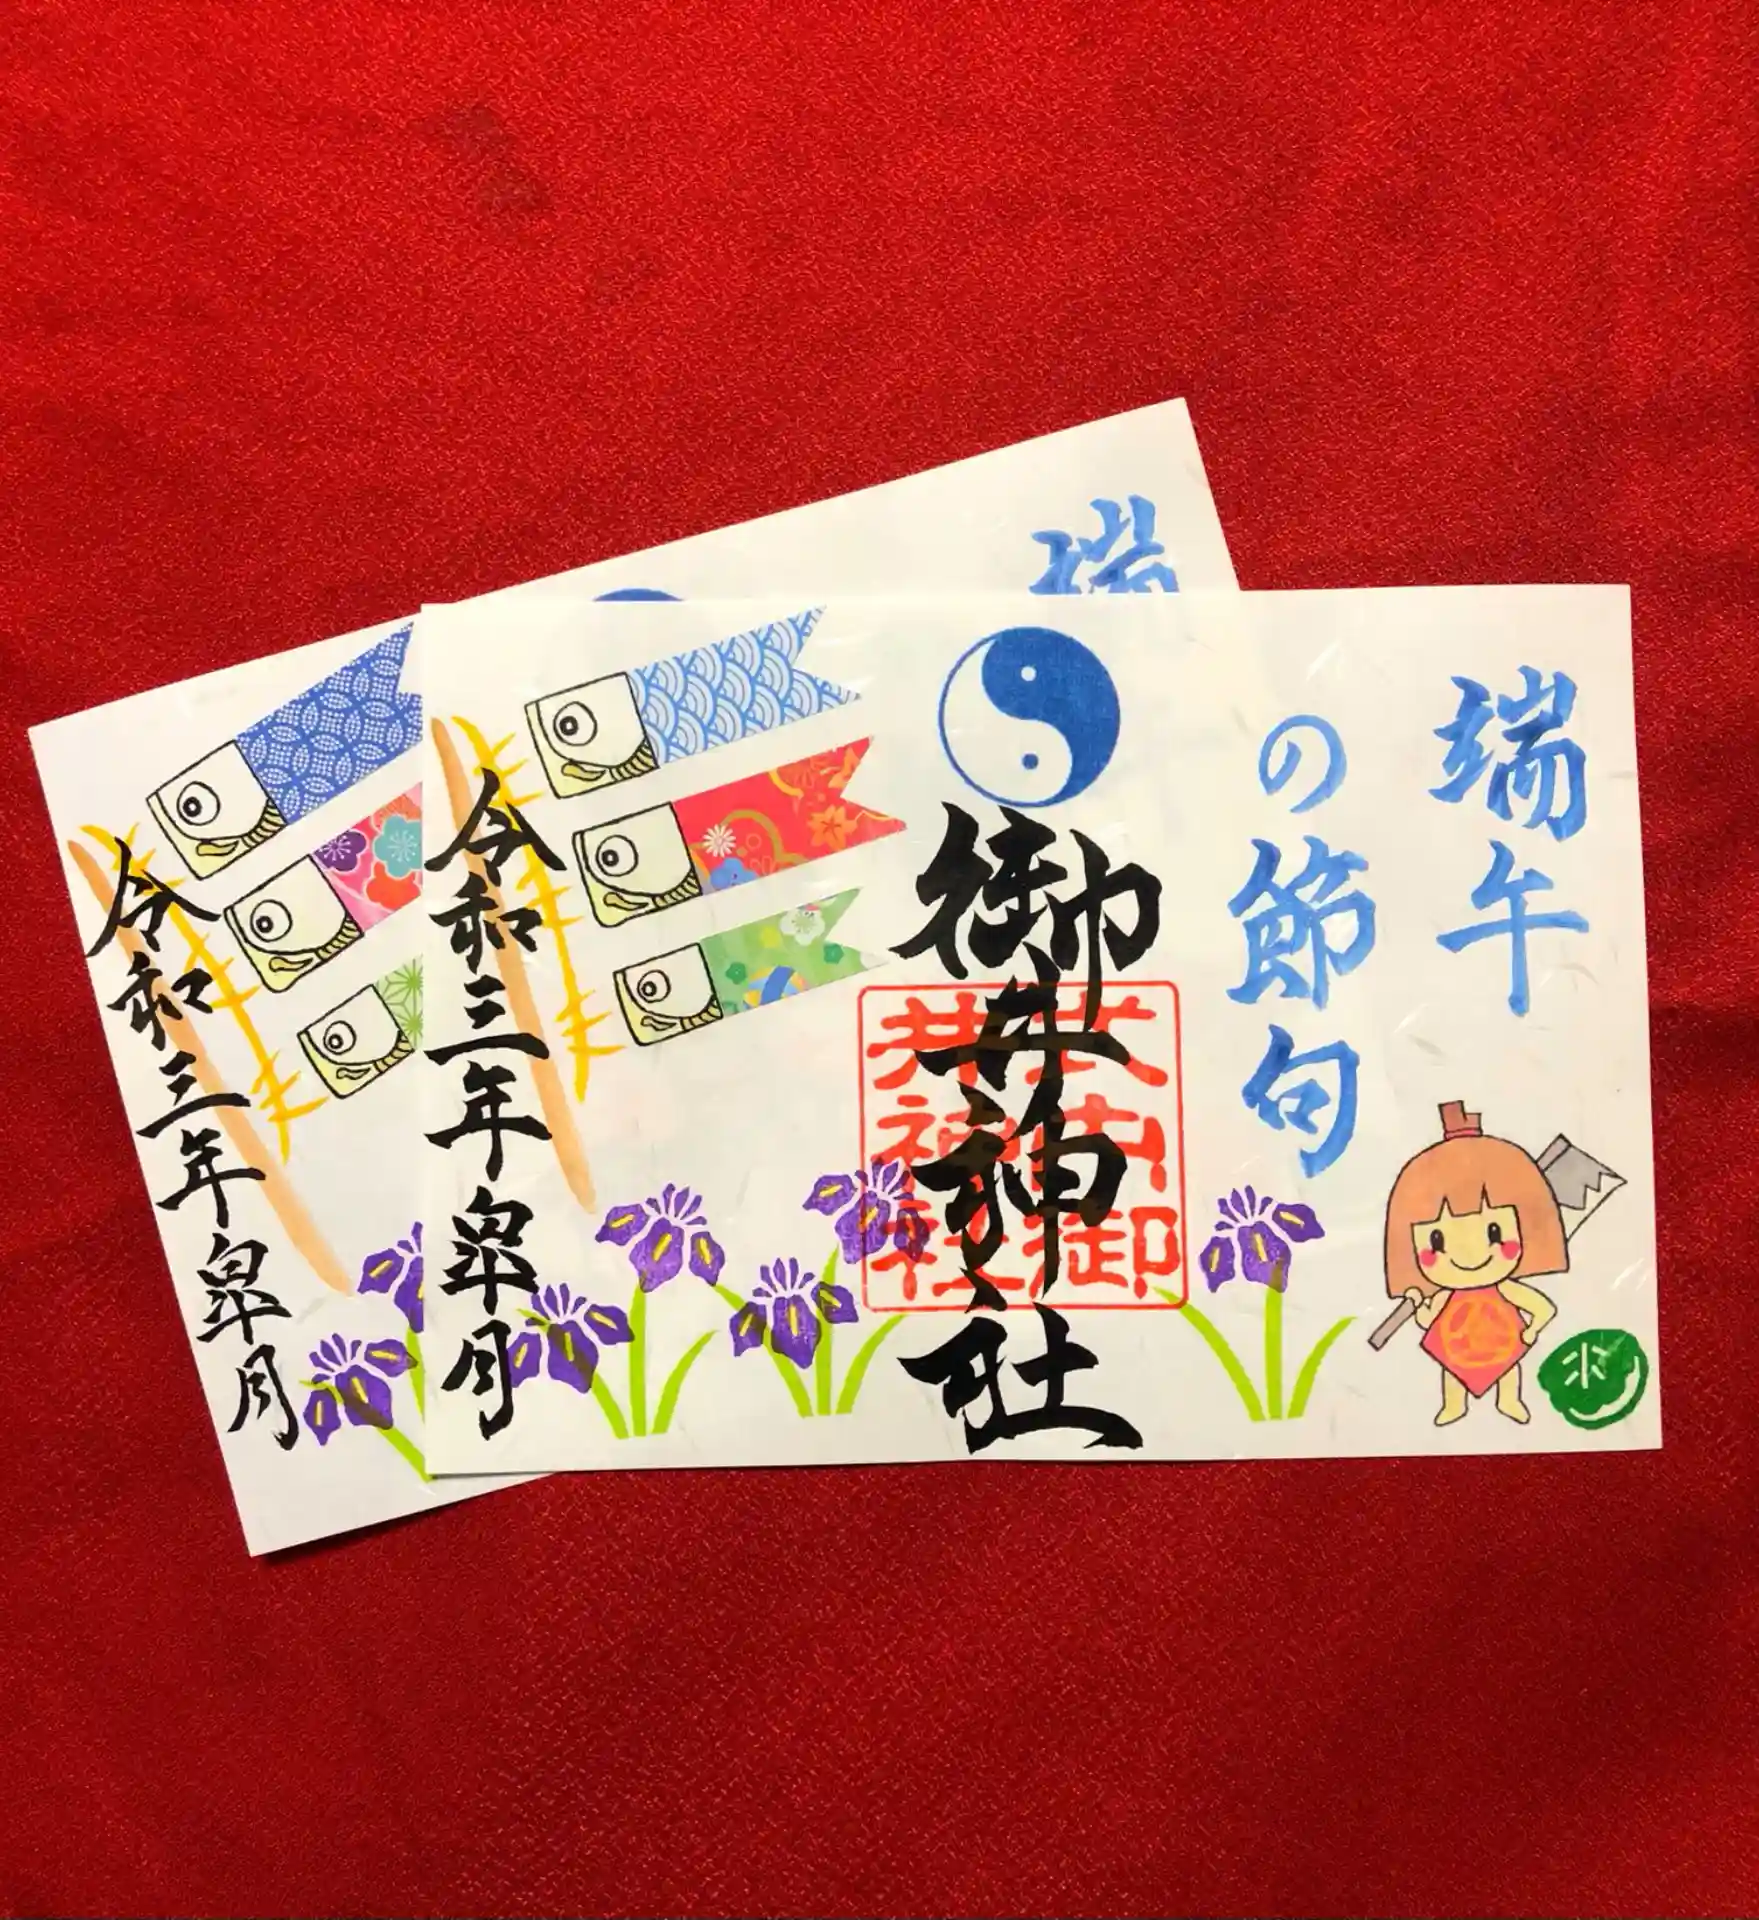 端午
の節句
御井神社
式内
御井神社
令和三年皐月
水
端
令和三年皐月